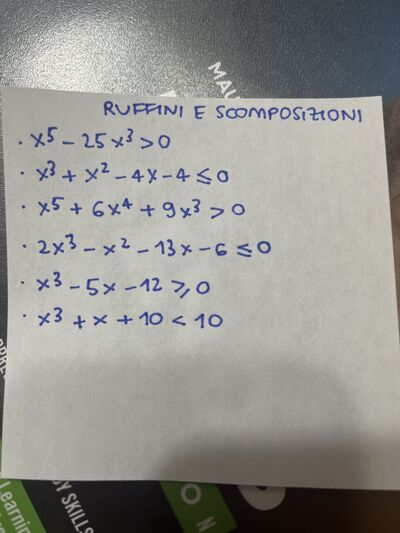 MAU
RUFFINI E SCOMPOSIZIONI
· x⁵ - 25x³ > 0
· x³ + x² - 4x - 4 ≤ 0
· x⁵ + 6x⁴ + 9x³ > 0
· 2x³ - x² - 13x - 6 ≤ 0
· x³ - 5x - 12 ⩾ 0
· x³ + x + 10 < 10
Learnin
SKILLS
ON